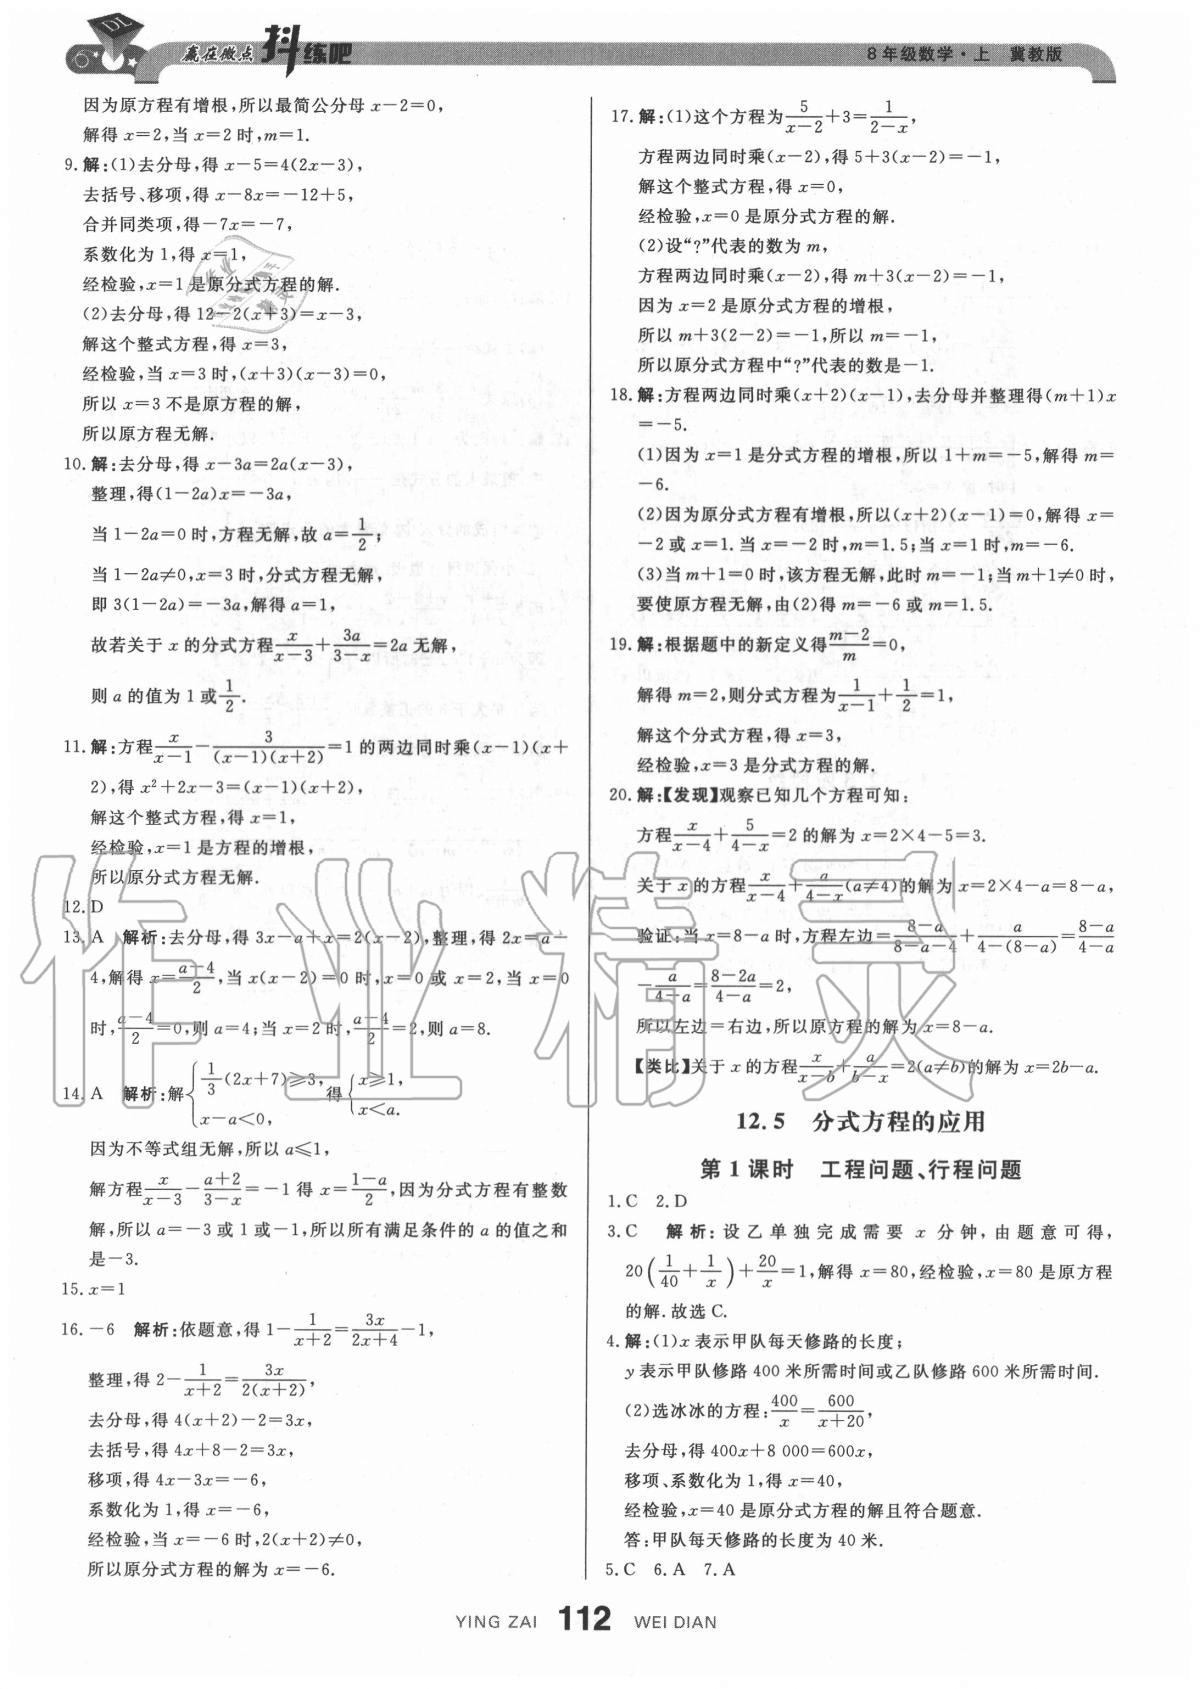 DL
赢在微点 抖练吧
8年级数学·上 冀教版
因为原方程有增根,所以最简公分母 x−2=0,
解得 x=2,当 x=2 时,m=1.
9.解:(1)去分母,得 x−5=4(2x−3),
去括号、移项,得 x−8x=−12+5,
合并同类项,得−7x=−7,
系数化为 1,得 x=1,
经检验,x=1 是原分式方程的解.
(2)去分母,得 12−2(x+3)=x−3,
解这个整式方程,得 x=3,
经检验,当 x=3 时,(x+3)(x−3)=0,
所以 x=3 不是原方程的解,
所以原方程无解.
10.解:去分母,得 x−3a=2a(x−3),
整理,得(1−2a)x=−3a,
当 1−2a=0 时,方程无解,故 a=1/2;
当 1−2a≠0,x=3 时,分式方程无解,
即 3(1−2a)=−3a,解得 a=1,
故若关于 x 的分式方程 x/(x−3)+3a/(3−x)=2a 无解,
则 a 的值为 1 或 1/2.
11.解:方程 x/(x−1)−3/((x−1)(x+2))=1 的两边同时乘(x−1)(x+
2),得 x²+2x−3=(x−1)(x+2),
解这个整式方程,得 x=1,
经检验,x=1 是方程的增根,
所以原分式方程无解.
12.D
13.A 解析:去分母,得 3x−a+x=2(x−2),整理,得 2x=a−
4,解得 x=(a−4)/2,当 x(x−2)=0 时,x=0 或 x=2,当 x=0
时,(a−4)/2=0,则 a=4;当 x=2 时,(a−4)/2=2,则 a=8.
14.A 解析:解{1/3(2x+7)≥3, x−a<0, 得{x≥1, x<a.
因为不等式组无解,所以 a≤1,
解方程 x/(x−3)−(a+2)/(3−x)=−1 得 x=(1−a)/2,因为分式方程有整数
解,所以 a=−3 或 1 或−1,所以所有满足条件的 a 的值之和
是−3.
15.x=1
16.−6 解析:依题意,得 1−1/(x+2)=3x/(2x+4)−1,
整理,得 2−1/(x+2)=3x/(2(x+2)),
去分母,得 4(x+2)−2=3x,
去括号,得 4x+8−2=3x,
移项,得 4x−3x=−6,
系数化为 1,得 x=−6,
经检验,当 x=−6 时,2(x+2)≠0,
所以原分式方程的解为 x=−6.
17.解:(1)这个方程为 5/(x−2)+3=1/(2−x),
方程两边同时乘(x−2),得 5+3(x−2)=−1,
解这个整式方程,得 x=0,
经检验,x=0 是原分式方程的解.
(2)设“?”代表的数为 m,
方程两边同时乘(x−2),得 m+3(x−2)=−1,
因为 x=2 是原分式方程的增根,
所以 m+3(2−2)=−1,所以 m=−1,
所以原分式方程中“?”代表的数是−1.
18.解:方程两边同时乘(x+2)(x−1),去分母并整理得(m+1)x
=−5.
(1)因为 x=1 是分式方程的增根,所以 1+m=−5,解得 m=
−6.
(2)因为原分式方程有增根,所以(x+2)(x−1)=0,解得 x=
−2 或 x=1.当 x=−2 时,m=1.5;当 x=1 时,m=−6.
(3)当 m+1=0 时,该方程无解,此时 m=−1;当 m+1≠0 时,
要使原方程无解,由(2)得 m=−6 或 m=1.5.
19.解:根据题中的新定义得 (m−2)/m=0,
解得 m=2,则分式方程为 1/(x−1)+1/2=1,
解这个分式方程,得 x=3,
经检验,x=3 是分式方程的解.
20.解:【发现】观察已知几个方程可知:
方程 x/(x−4)+5/(4−x)=2 的解为 x=2×4−5=3.
关于 x 的方程 x/(x−4)+a/(4−x)(a≠4)的解为 x=2×4−a=8−a,
验证:当 x=8−a 时,方程左边=(8−a)/(8−a−4)+a/(4−(8−a))=(8−a)/(4−a)
−a/(4−a)=(8−2a)/(4−a)=2,
所以左边=右边,所以原方程的解为 x=8−a.
【类比】关于 x 的方程 x/(x−b)+a/(b−x)=2(a≠b)的解为 x=2b−a.
12.5 分式方程的应用
第 1 课时 工程问题、行程问题
1.C 2.D
3.C 解析:设乙单独完成需要 x 分钟,由题意可得,
20(1/40+1/x)+20/x=1,解得 x=80,经检验,x=80 是原方程
的解.故选C.
4.解:(1)x 表示甲队每天修路的长度;
y 表示甲队修路 400 米所需时间或乙队修路 600 米所需时间.
(2)选冰冰的方程:400/x=600/(x+20),
去分母,得 400x+8 000=600x,
移项、系数化为 1,得 x=40,
经检验,x=40 是原分式方程的解且符合题意.
答:甲队每天修路的长度为 40 米.
5.C 6.A 7.A
YING ZAI 112 WEI DIAN
作业精灵